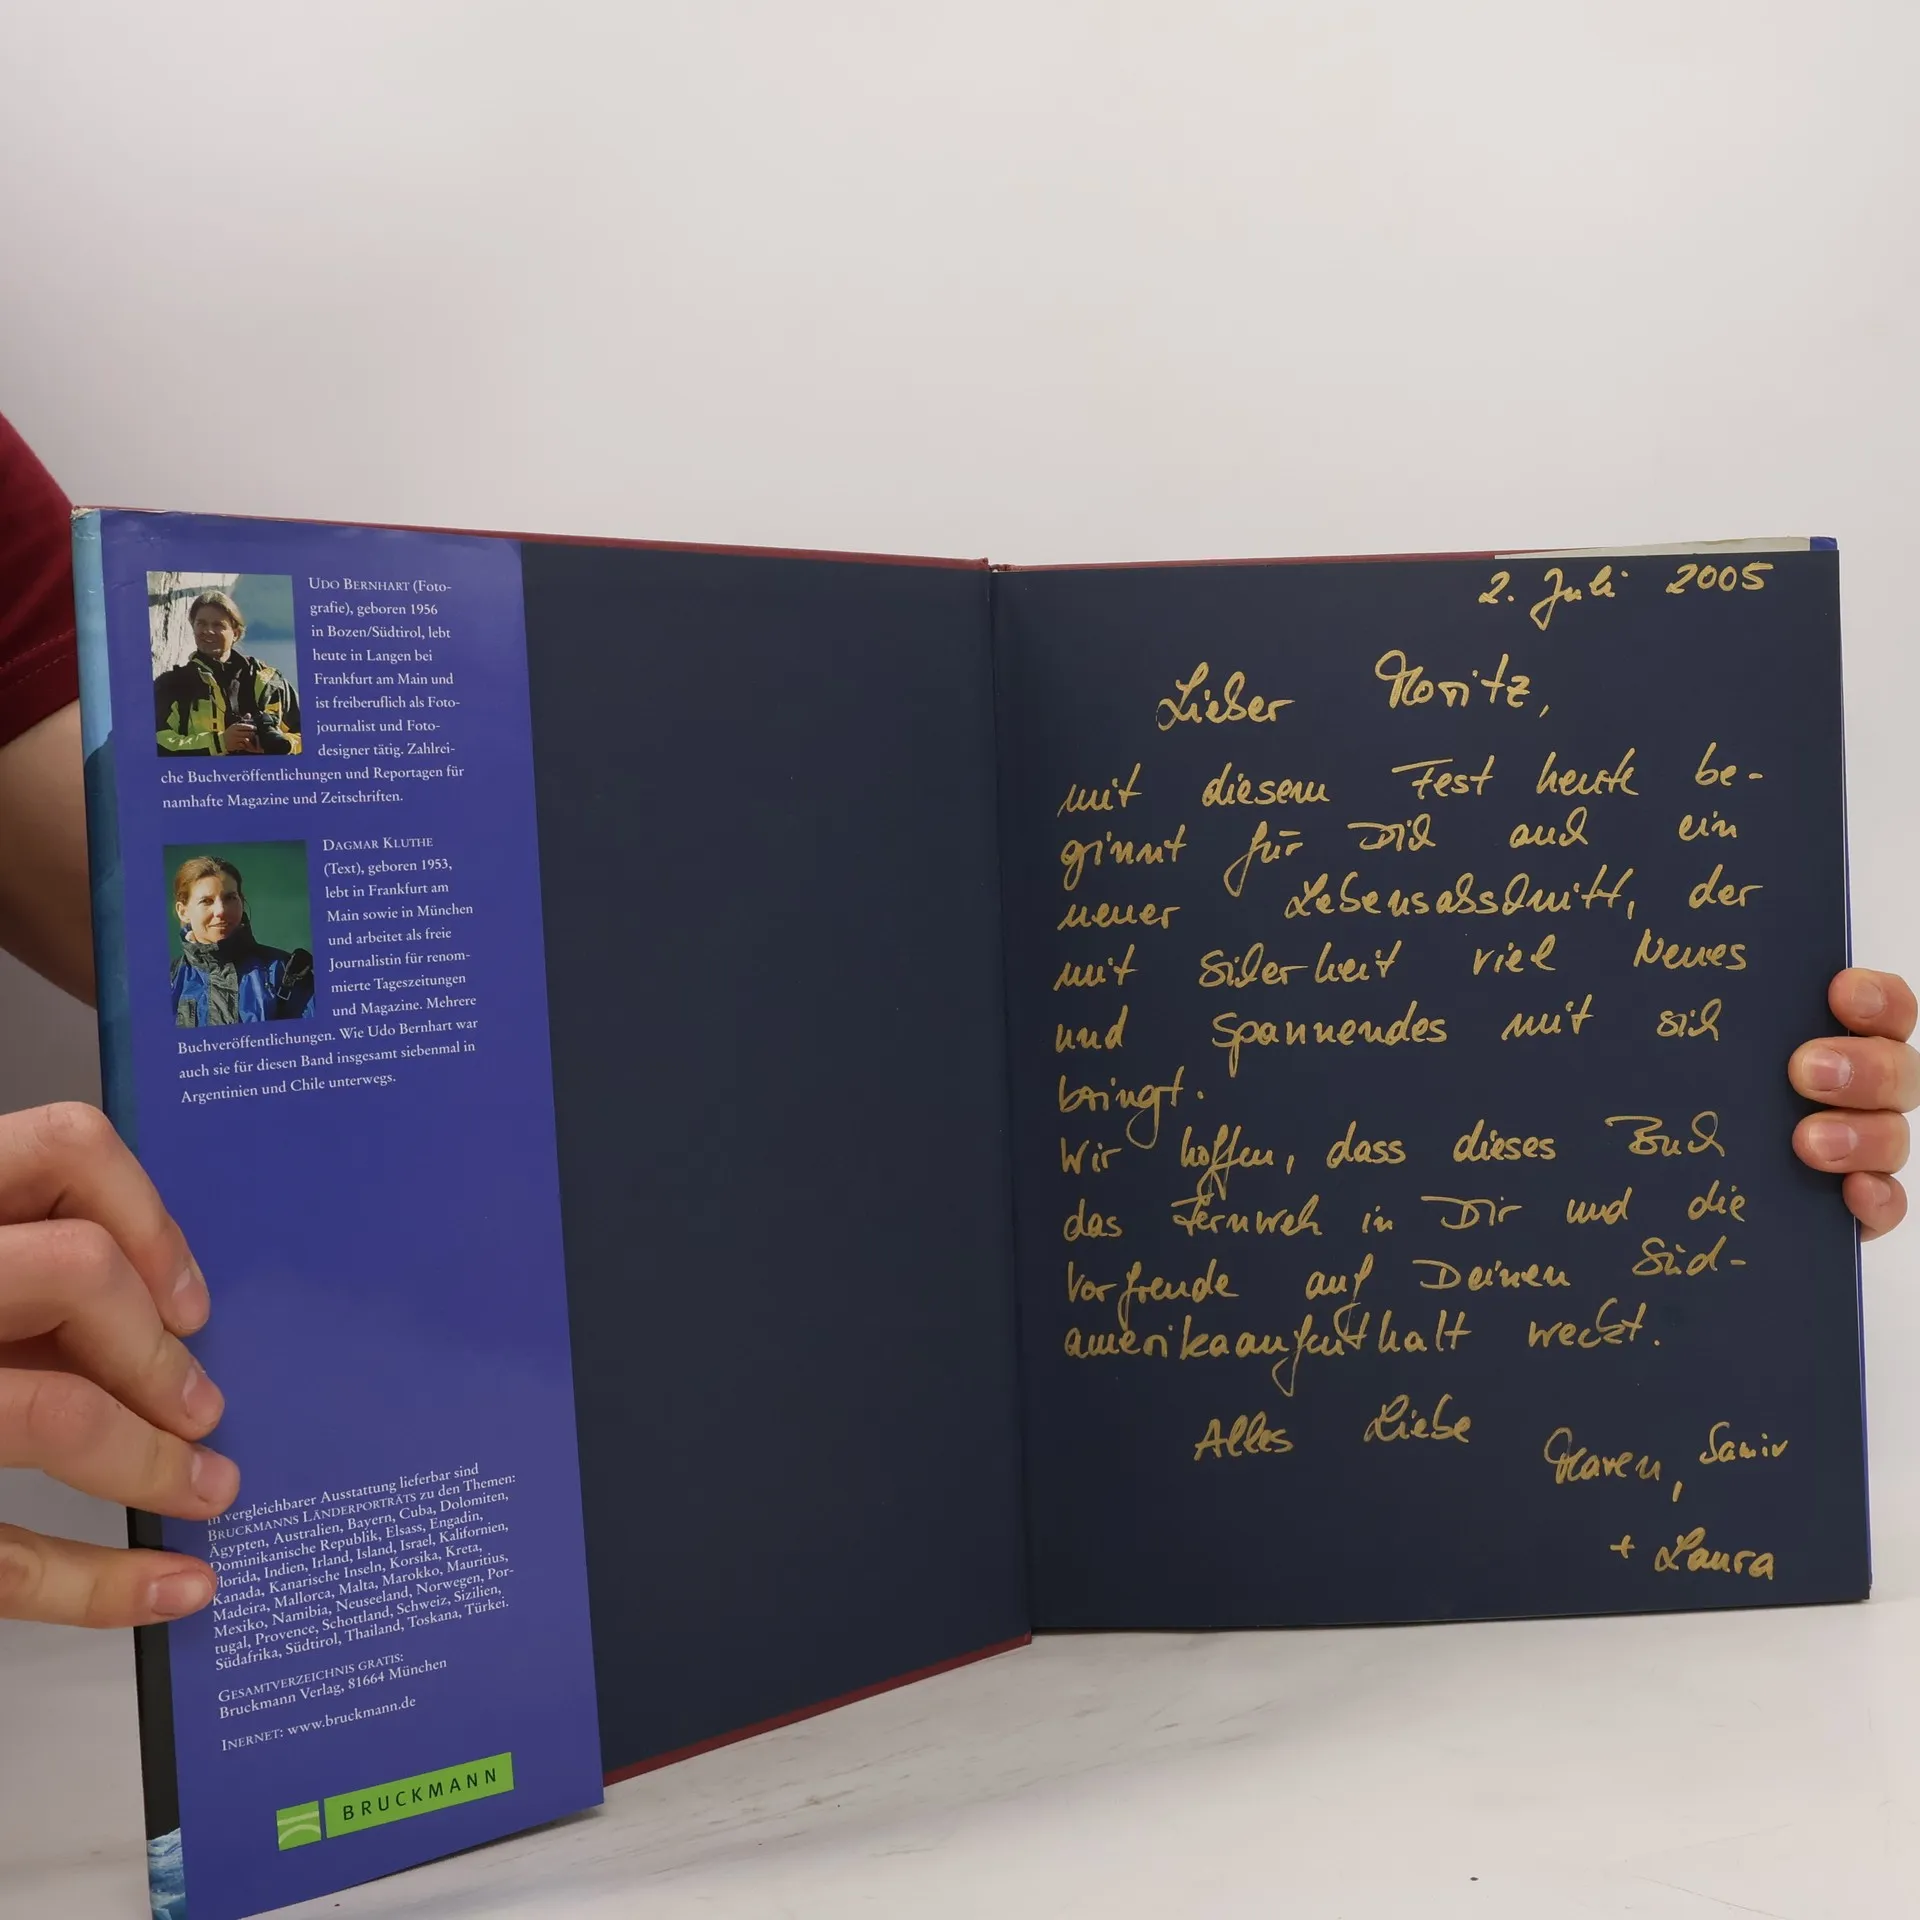 UDO BERNHART (Foto-
grafie), geboren 1956
in Bozen/Südtirol, lebt
heute in Langen bei
Frankfurt am Main und
ist freiberuflich als Foto-
journalist und Foto-
designer tätig. Zahlrei-
che Buchveröffentlichungen und Reportagen für
namhafte Magazine und Zeitschriften.
DAGMAR KLUTHE
(Text), geboren 1953,
lebt in Frankfurt am
Main sowie in München
und arbeitet als freie
Journalistin für renom-
mierte Tageszeitungen
und Magazine. Mehrere
Buchveröffentlichungen. Wie Udo Bernhart war
auch sie für diesen Band insgesamt siebenmal in
Argentinien und Chile unterwegs.
In vergleichbarer Ausstattung lieferbar sind
BRUCKMANNS LÄNDERPORTRÄTS zu den Themen:
Ägypten, Australien, Bayern, Cuba, Dolomiten,
Dominikanische Republik, Elsass, Engadin,
Florida, Indien, Irland, Island, Israel, Kalifornien,
Kanada, Kanarische Inseln, Korsika, Kreta,
Madeira, Mallorca, Malta, Marokko, Mauritius,
Mexiko, Namibia, Neuseeland, Norwegen, Por-
tugal, Provence, Schottland, Schweiz, Sizilien,
Südafrika, Südtirol, Thailand, Toskana, Türkei.
GESAMTVERZEICHNIS GRATIS:
Bruckmann Verlag, 81664 München
INERNET: www.bruckmann.de
BRUCKMANN
2. Juli 2005
Lieber Moritz,
mit diesem Fest heute be-
ginnt für Dich auch ein
neuer Lebensabschnitt, der
mit Sicherheit viel Neues
und Spannendes mit sich
bringt.
Wir hoffen, dass dieses Buch
das Fernweh in Dir und die
Vorfreude auf Deinen Süd-
amerikaaufenthalt weckt.
Alles Liebe
Maren, Samir
+ Laura